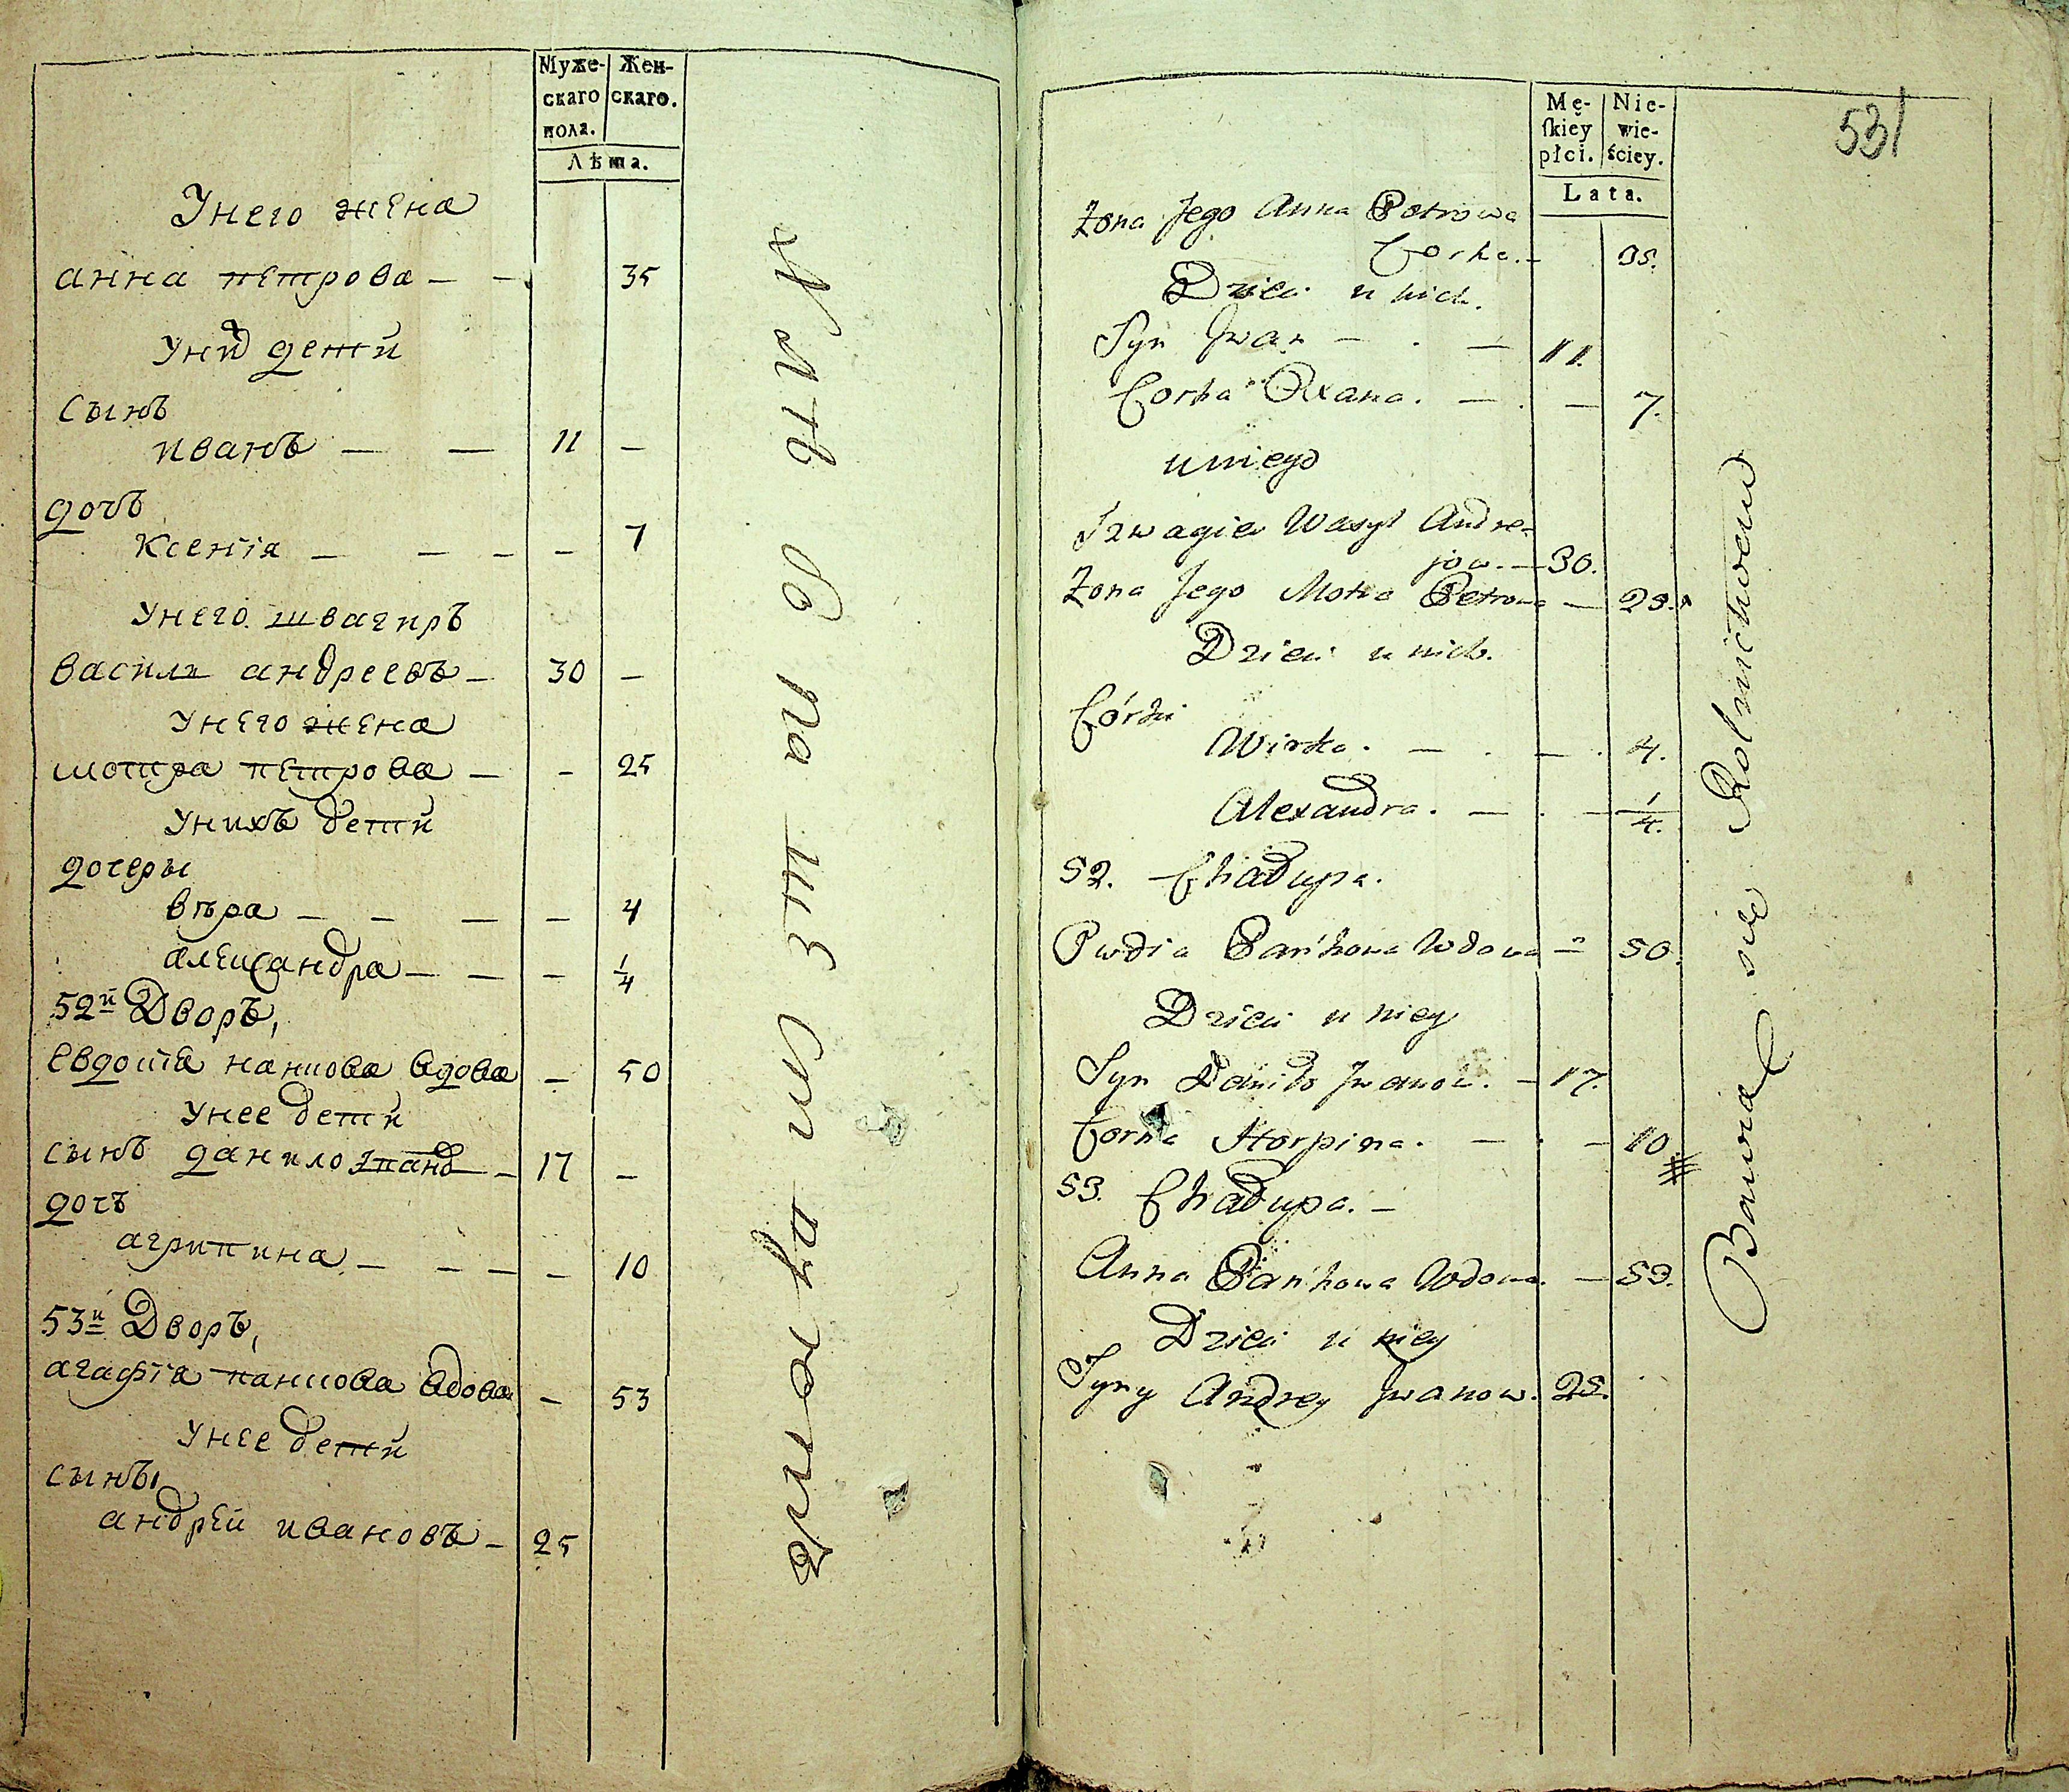 Муже-
скаго
пола.
Жен-
скаго.
Лѣта.
Унего жена
анна петрова — — 35
Уних детй
сынъ
иванъ — — 11 —
дочъ
Ксенія — — — — 7
Унего швагиръ
василь андреевъ — 30 —
Унего жена
мотря петрова — — 25
Унихъ детй
дочеры
вѣра — — — — 4
александра — — — 1/4
52й Дворъ,
евдокія панкова вдова — 50
Унее детй
сынъ данило — 17 —
дочъ
агрипина — — — — 10
53й Дворъ,
агафія панкова вдова — 53
Унее детй
сынъı
андрей ивановъ — 25
Mę-
ſkiey
płci.
Nie-
wie-
ściey.
Lata.
531
Żona Jego Anna Petrowa
Corka. — 35.
Dzieci u nich.
Syn Jwan — . — 11.
Corka Oxana. — . — 7.
u niego
Szwagier Wasyl Andre-
jow. — 30.
Żona Jego Motra Petrowa — 25.
Dzieci u nich.
Córki
Wirka. — . — . 4.
Alexandra. — . — 1/4.
52. Chałupa.
Pańkowa Wdowa — 50.
Dzieci u niey
Syn Daniło Jwanow. — 17.
Corka Horpina. — . — 10.
53. Chałupa. —
Anna Pańkowa Wdowa. — 53.
Dzieci u niey
Syny Andrey Jwanow. 25.
Bawią się Rolnictwem